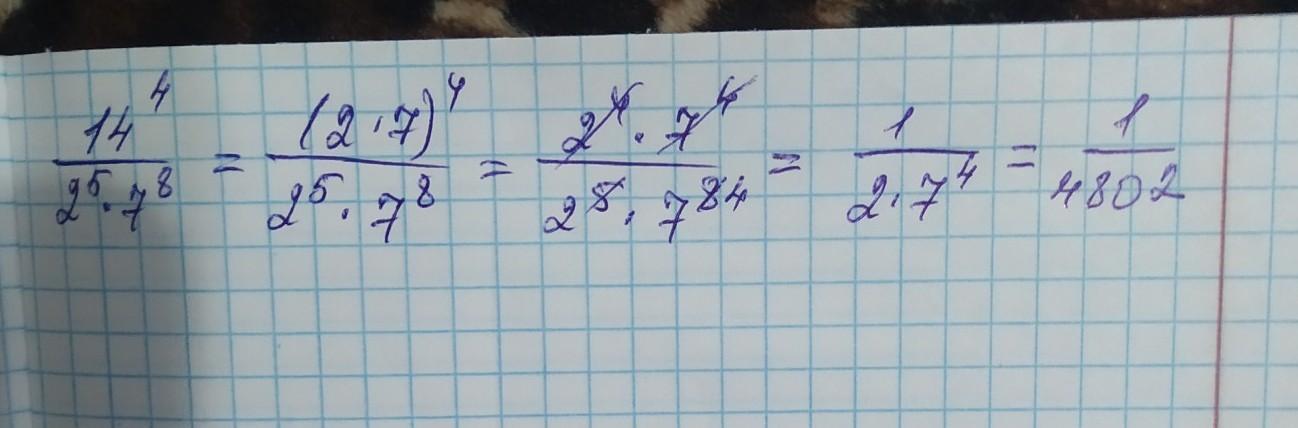 14⁴/(2⁵·7⁸) = (2·7)⁴/(2⁵·7⁸) = (2⁴·7⁴)/(2⁵·7⁸ ⁴) = 1/(2·7⁴) = 1/4802